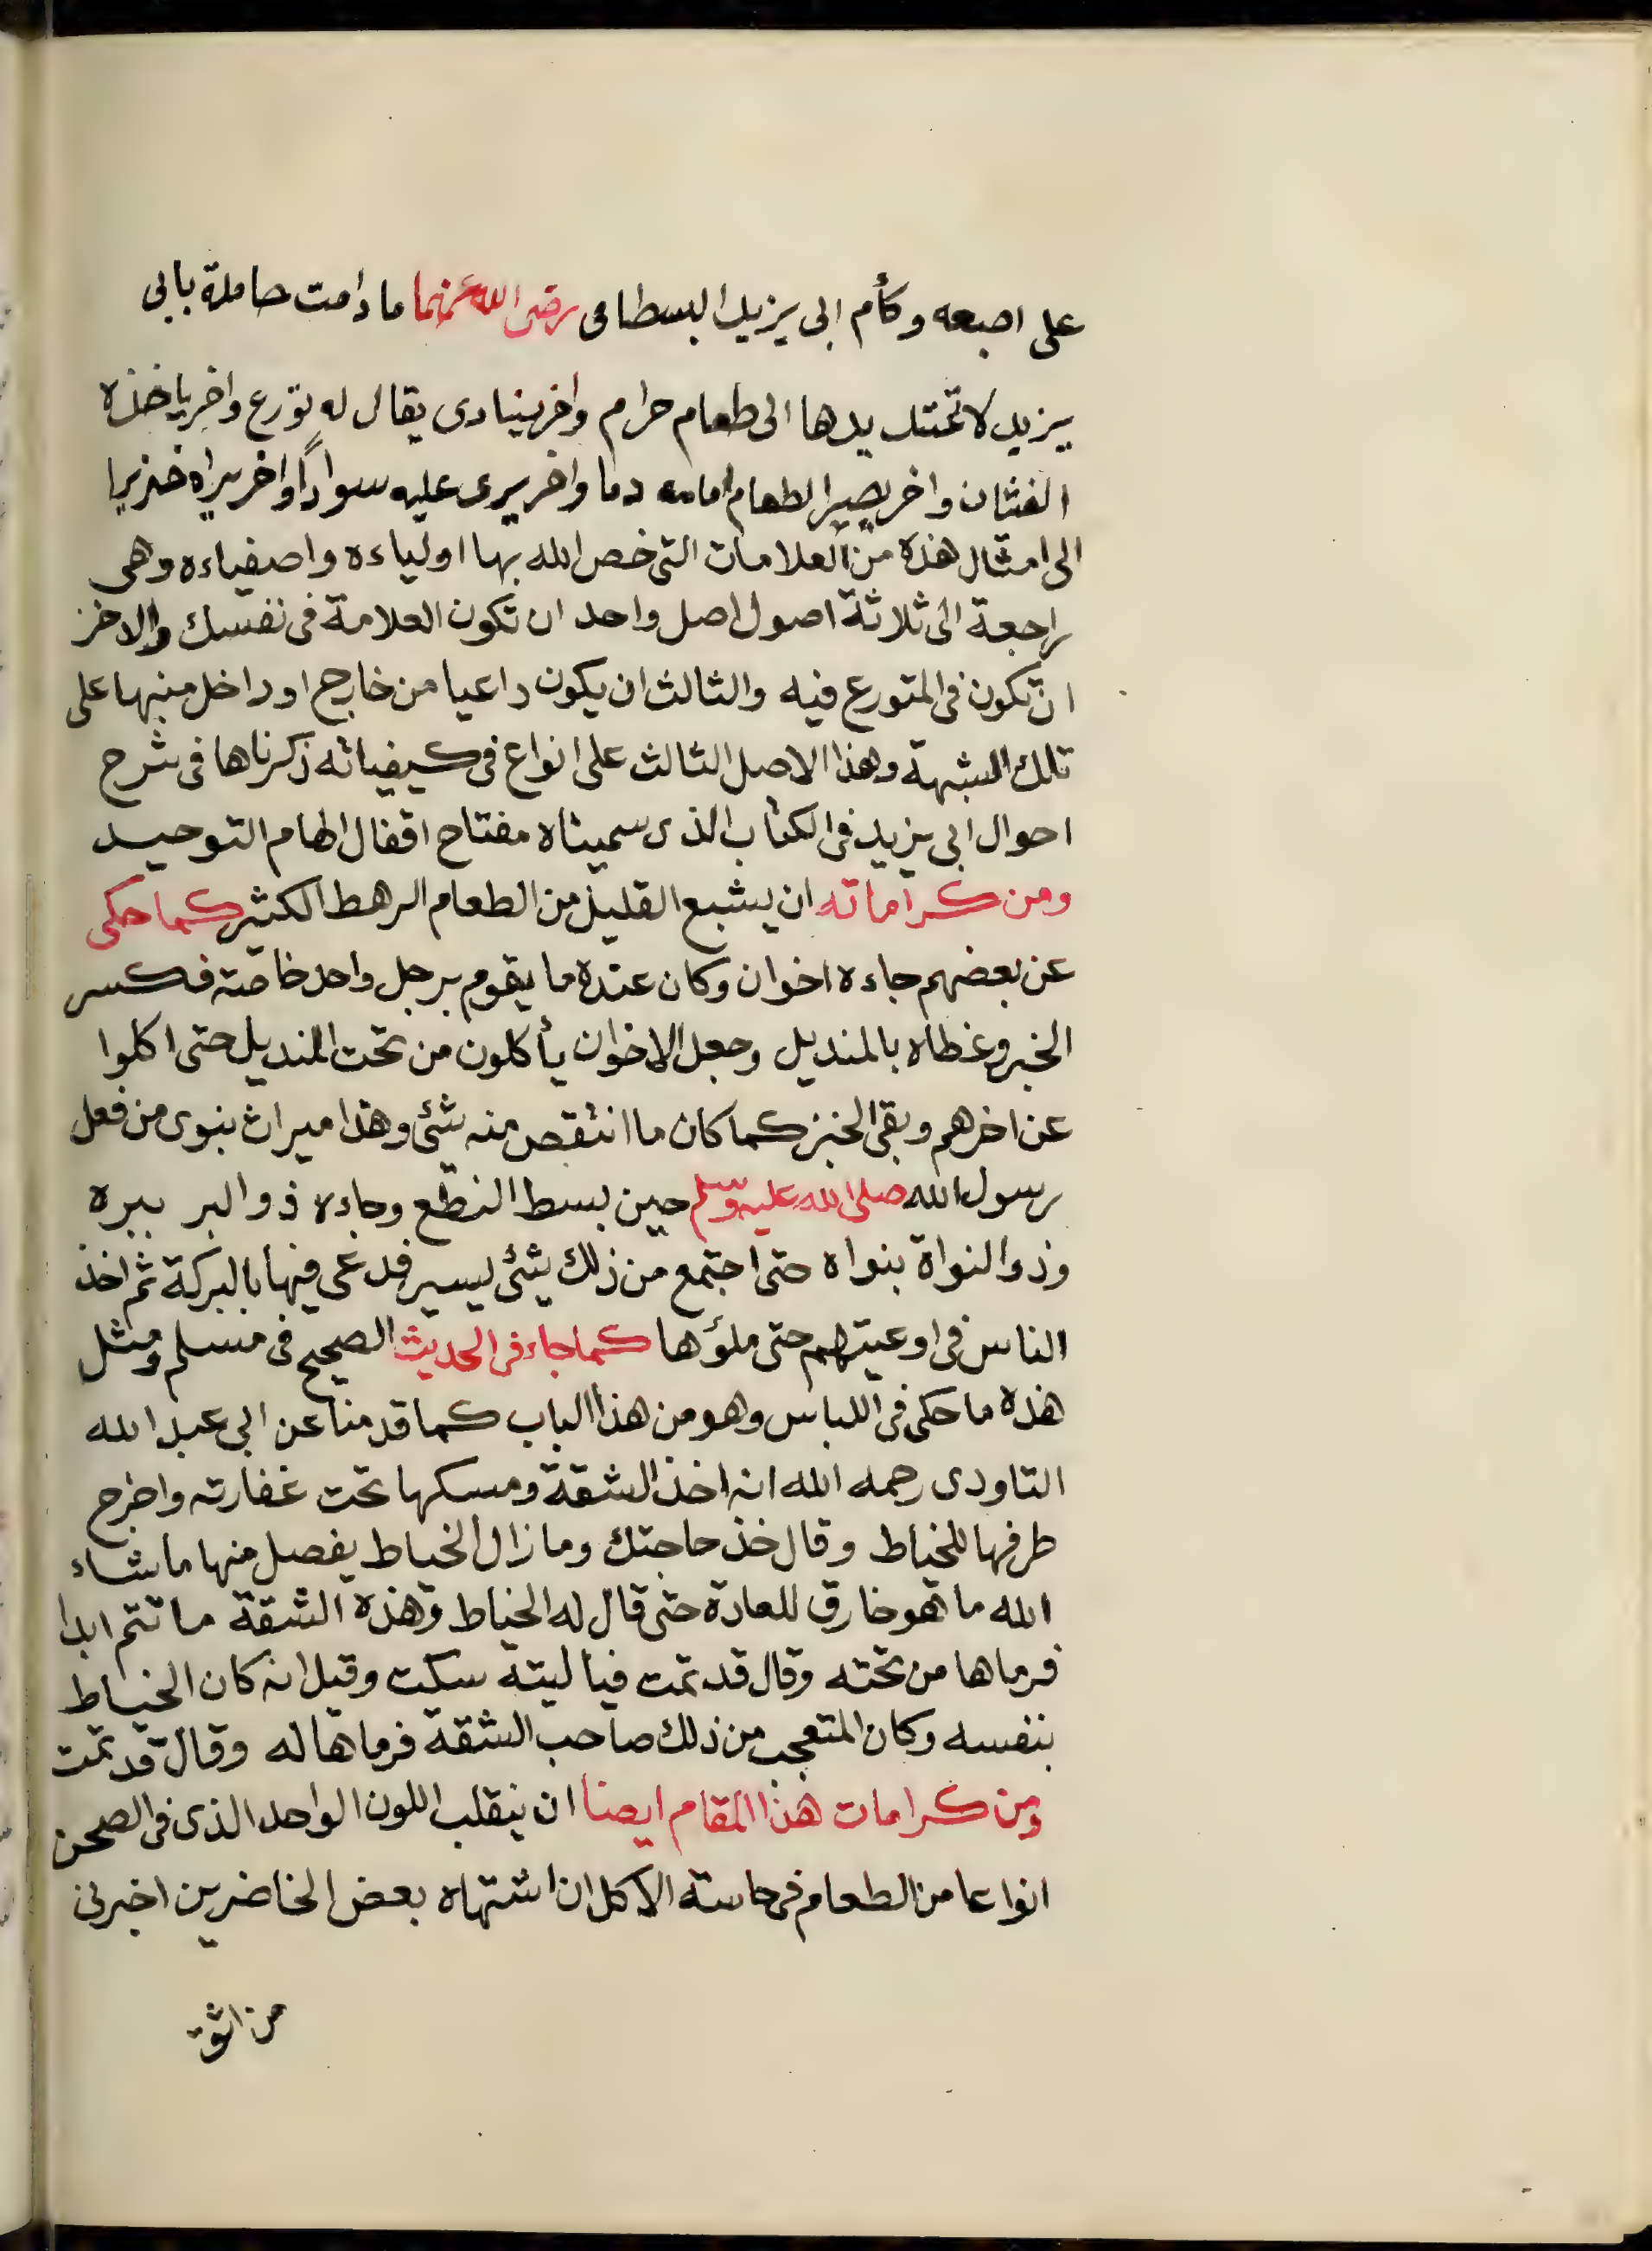 على اصبعه وكأم ابى يزيد البسطامى رضى الله عنهما ما دامت حاملة بابى
يزيد لا تمتد يدها الى طعام حرام واخر ينادى يقال له تورع واخر ياخذه
الغثيان واخر يصير الطعام امامه دما واخر يرى عليه سوادًا واخر يراه خنزيرا
الى امثال هذه من العلامات التى خص الله بها اولياءه واصفياءه وهى
راجعة الى ثلاثة اصول اصل واحد ان تكون العلامة فى نفسك والاخر
ان تكون فى المتورع فيه والثالث ان يكون داعيا من خارج او داخل منبها على
تلك الشبهة وهذا الاصل الثالث على انواع فى كيفياته ذكرناها فى شرح
احوال ابى يزيد فى الكتاب الذى سميناه مفتاح اقفال الهام التوحيد
ومن كراماته ان يشبع القليل من الطعام الرهط الكثير كما حكى
عن بعضهم جاءه اخوان وكان عنده ما يقوم برجل واحد خاصة فكسر
الخبز وغطاه بالمنديل وجعل الاخوان يأكلون من تحت المنديل حتى اكلوا
عن اخرهم وبقى الخبز كما كان ما انتقص منه شئ وهذا ميراث نبوى من فعل
رسول الله صلى الله عليه وسلم حين بسط النطع وجاءه ذو البر ببره
وذو النواة بنواه حتى اجتمع من ذلك شئ يسير فدعى فيها بالبركة ثم اخذ
الناس فى اوعيتهم حتى ملؤها كما جاء فى الحديث الصحيح فى مسلم ومثل
هذه ما حكى فى اللباس وهو من هذا الباب كما قدمنا عن ابى عبد الله
التاودى رحمه الله انه اخذ الشقة ومسكها تحت غفارته واخرج
طرفها للخياط وقال خذ حاجتك وما زال الخياط يفصل منها ما شاء
الله ما هو خارق للعادة حتى قال له الخياط وهذه الشقة ما تتم ابدا
فرماها من تحته وقال قد تمت فيا ليته سكت وقيل انه كان الخياط
بنفسه وكان المتعجب من ذلك صاحب الشقة فرماها له وقال قد تمت
ومن كرامات هذا المقام ايضا ان ينقلب اللون الواحد الذى فى الصحن
انواعا من الطعام فى حاسة الاكل ان اشتهاه بعض الحاضرين اخبرنى
من اثق